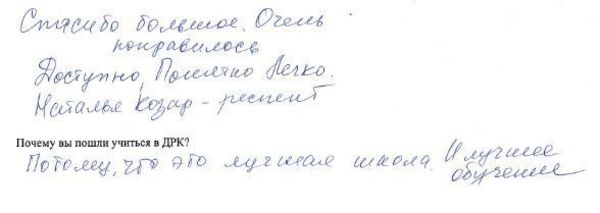 Спасибо большое. Очень
понравилось
Доступно, Понятно Легко.
Наталье Козар - респект
Почему вы пошли учиться в ДРК?
Потому, что это лучшая школа. И лучшее
обучение